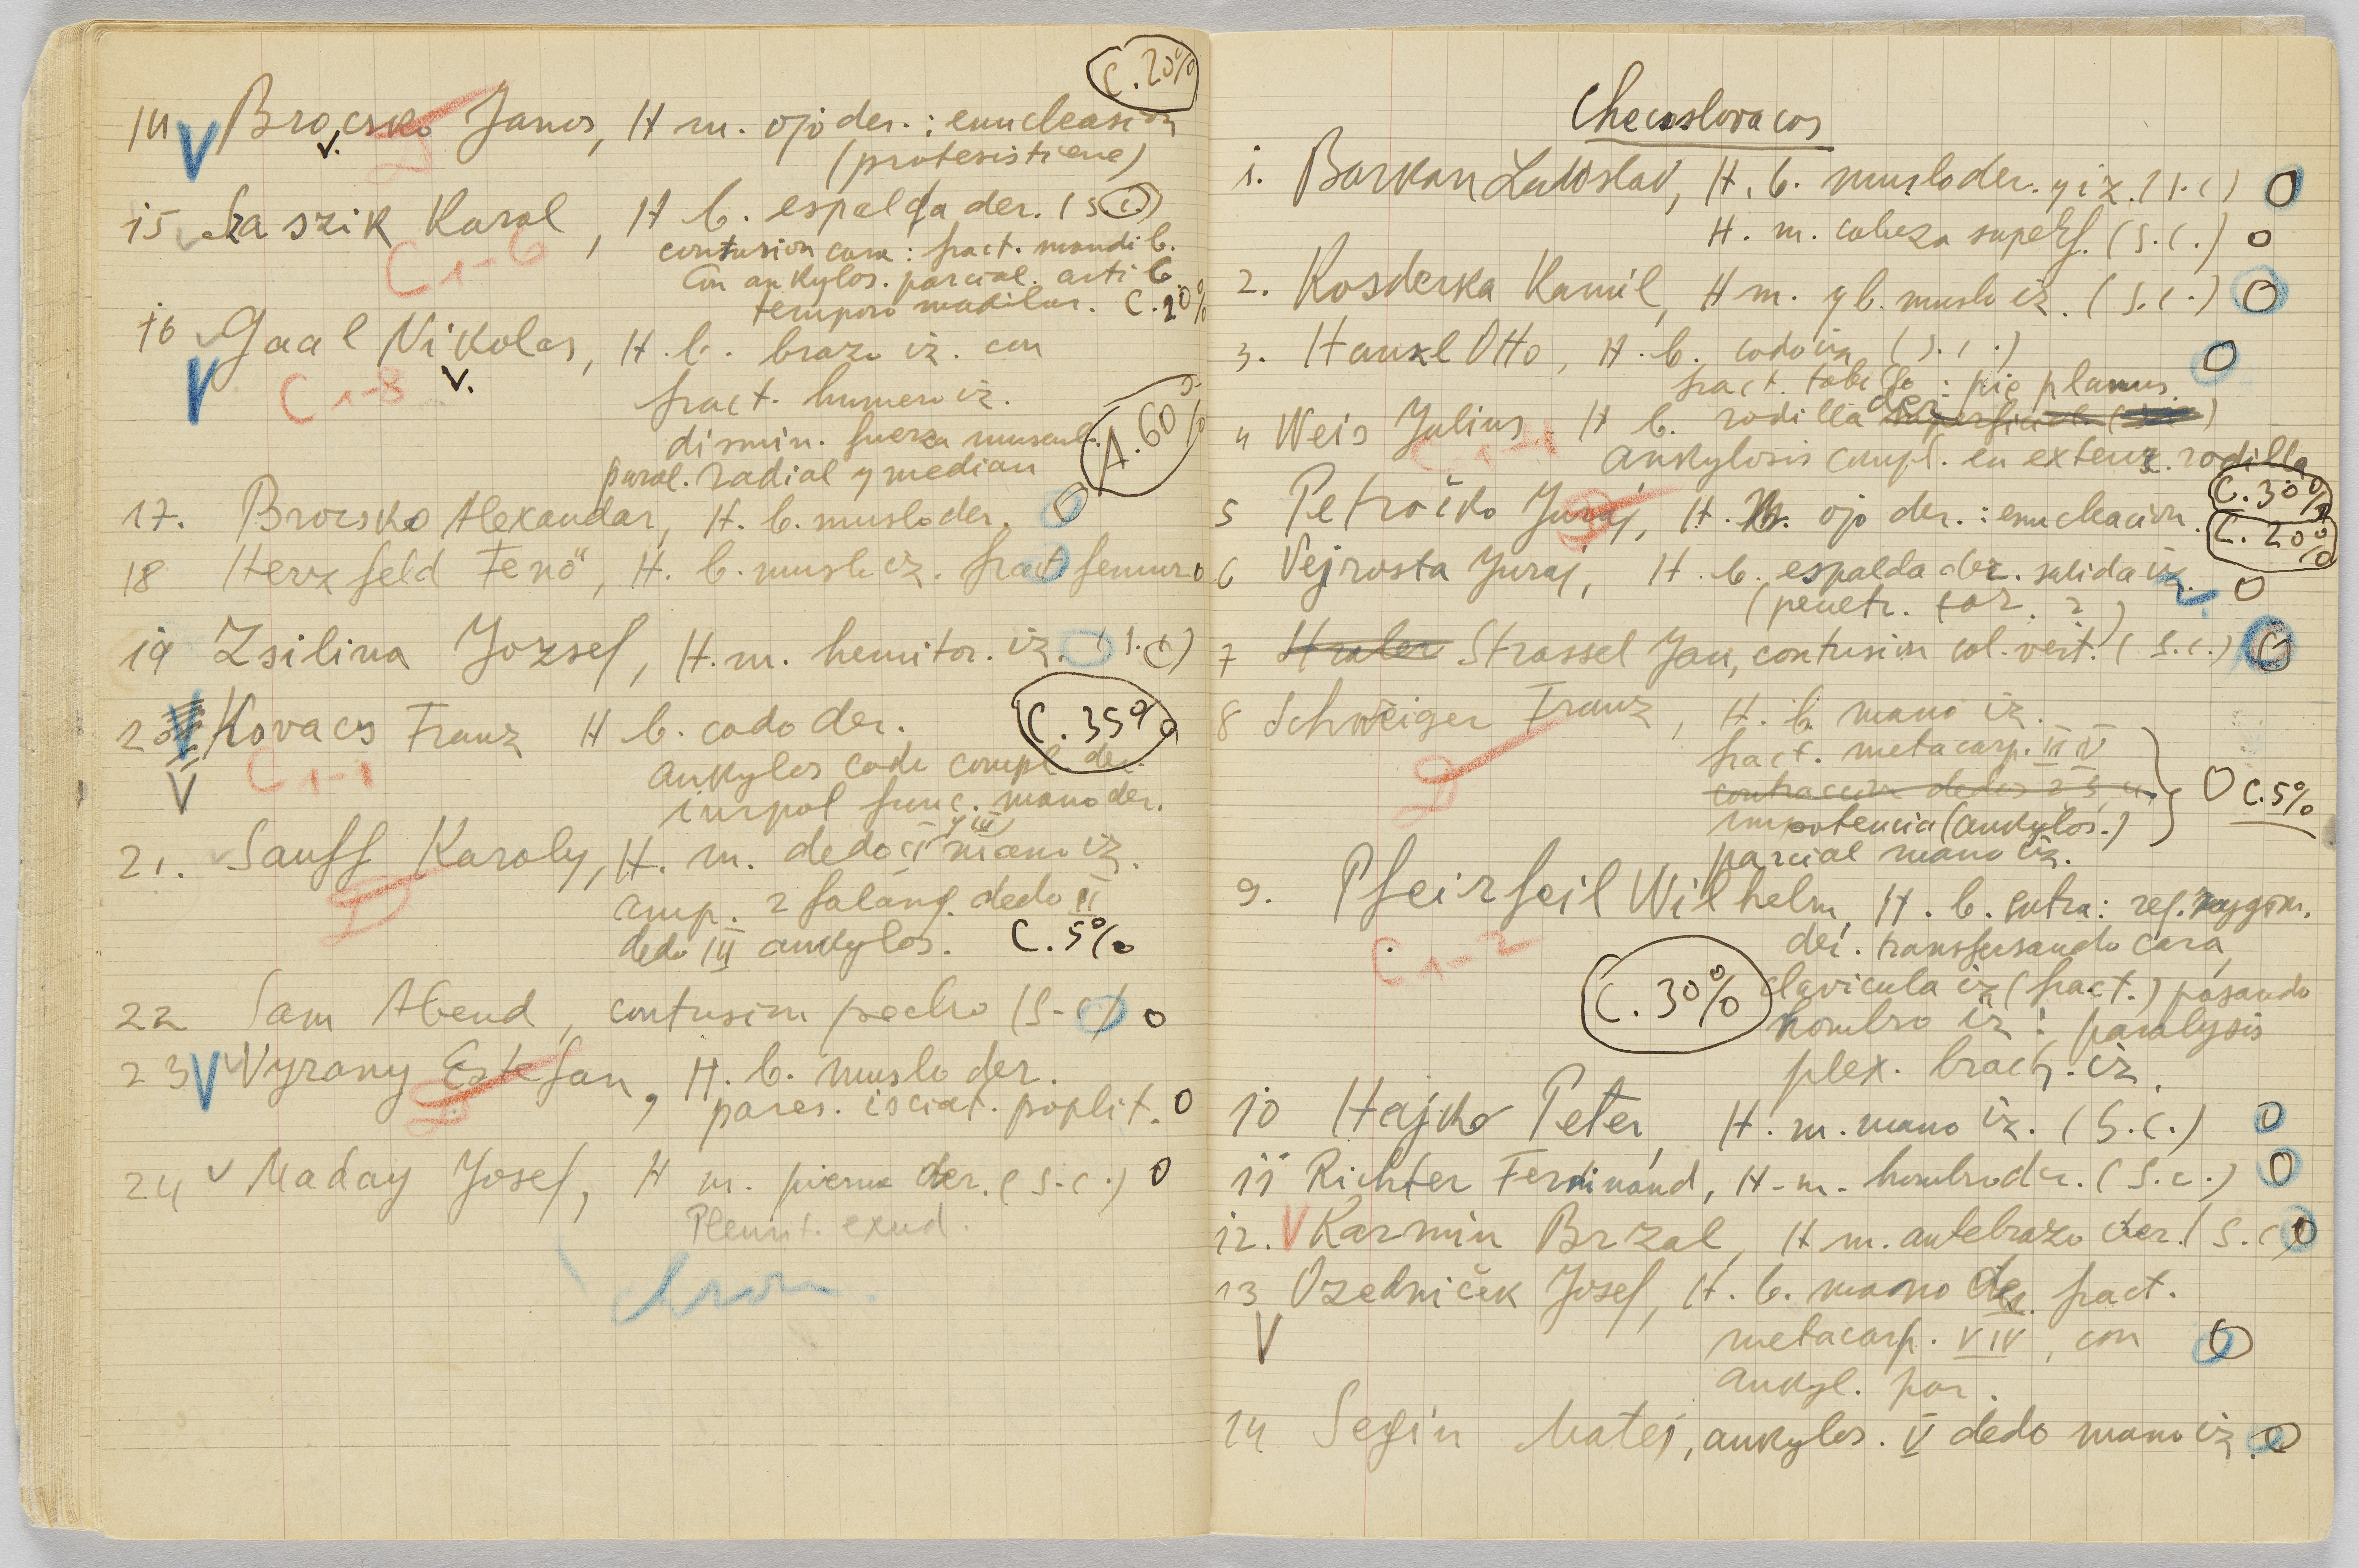 C. 20%
14 V Brocsko Janos, H m. ojo der. : enucleasion
V.
D
(protesistiene)
15 Laszik Karol, H b. espalda der. (s.c.)
C 1-6
contusion cara : fract. mandib.
con ankylos. parcial. artic.
temporo madilar. C. 20%
16 Gaal Nikolas, H. b. brazo iz. con
V C 1-8 V.
fract. humero iz.
dismin. fuerza muscul.
A. 60%
paral. radial y median
17. Brocsko Alexandar, H. b. muslo der. O
18 Herzfeld Jenö, H. b. muslo iz. fract femur. O
19 Zsilina Jozsef, H. m. hemitor. iz. (s.c)
20 V Kovacs Franz H b. codo der. C. 35%
V C 1-1
ankylos codo compl. der.
inpot func. mano der.
21. Sauff Karoly, H. m. dedo II y III mano iz.
D
amp. 2 falang. dedo II
dedo III ankylos. C. 5%
22 Sam Abend, contusion pecho (s.c) O
23 V Vyrany Estefan, H. b. muslo der.
D
pares. isciat. poplit. O
24 v Maday Josef, H m. pierna der. (s.c.) O
Pleurit. exud.
chron.
Checoslovacos
1. Barkan Ladislav, H. b. muslo der. y iz. (s.c) O
H. m. cabeza superf. (s.c.) O
2. Kosderka Kamil, H m. y b. muslo iz. (s.c.) O
3. Hankl Otto, H. b. codo iz (s.c.) O
fract. tobillo : pie planus.
4 Weis Julius H b. rodilla der. superficial
C 1-4
ankylosis compl. en extens. rodilla
C. 30%
5 Petročko Juraj, H. m. ojo der. : enucleacion. C. 20%
D
6 Vejrosta Juraj, H. b. espalda der. salida iz. O
(penetr. tor. ?)
7 Hraler Strassel Jan, contusion col. vert. (s.c.) O
8 Schweiger Franz, H. b. mano iz.
D
fract. metacarp. III IV
contraccion dedos 2 3 4
O C. 5%
impotencia (ankylos.)
parcial mano iz.
9. Pfeirfeil Wilhelm, H. b. entra: reg. zygom.
C 1-2
der. transfersando cara,
C. 30%
clavicula iz (fract.) pasando
hombro iz : paralysis
plex. brach. iz.
10 Hajko Peter, H. m. mano iz. (s.c.) O
11 Richter Ferdinand, H. m. hombro der. (s.c.) O
12. V Karmin Brzal, H m. antebrazo der. (s.c) O
13 Ozedniček Josef, H. b. mano der. fract.
V
metacarp. V IV, con O
ankyl. par.
14 Segin Matej, ankylos. V dedo mano iz. O